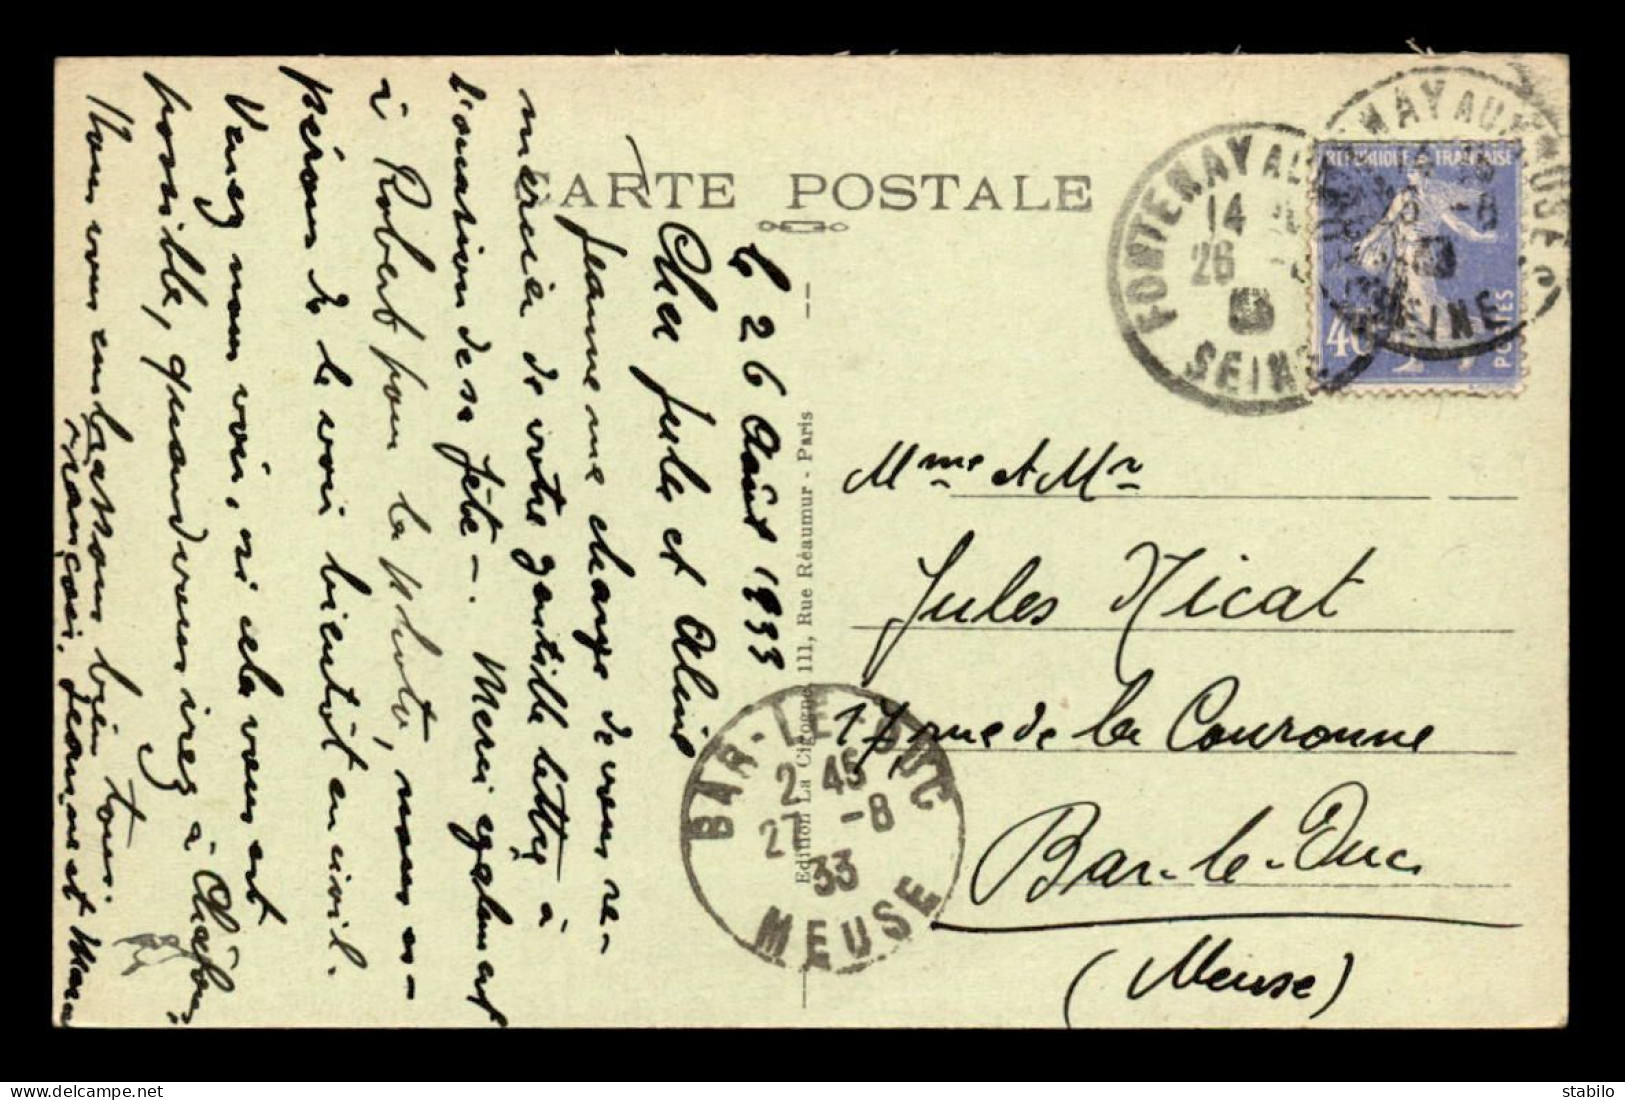 CARTE POSTALE
Le 26 Août 1933
Cher Jules et Aline
Jeanne me charge de vous re-
mercier de votre gentille lettre à
l'occasion de sa fête -. Merci également
à Robert pour la photo, nous es-
pérons le voir bientôt en civil.
Venez nous voir, si cela vous est
possible, quand vous irez à
Nous vous embrassons bien tous.
François. Jeanne et
Edition La Cigogne, 111, Rue Réaumur - Paris
FONTENAY AUX ROSES
14
26 -8
SEINE
FONTENAY AUX ROSES
-8
SEINE
REPUBLIQUE FRANÇAISE
40c
POSTES
Mme et Mr
Jules Nicat
17 rue de la Couronne
Bar-le-Duc
(Meuse)
BAR-LE-DUC
2 45
27 -8
33
MEUSE
stabilo